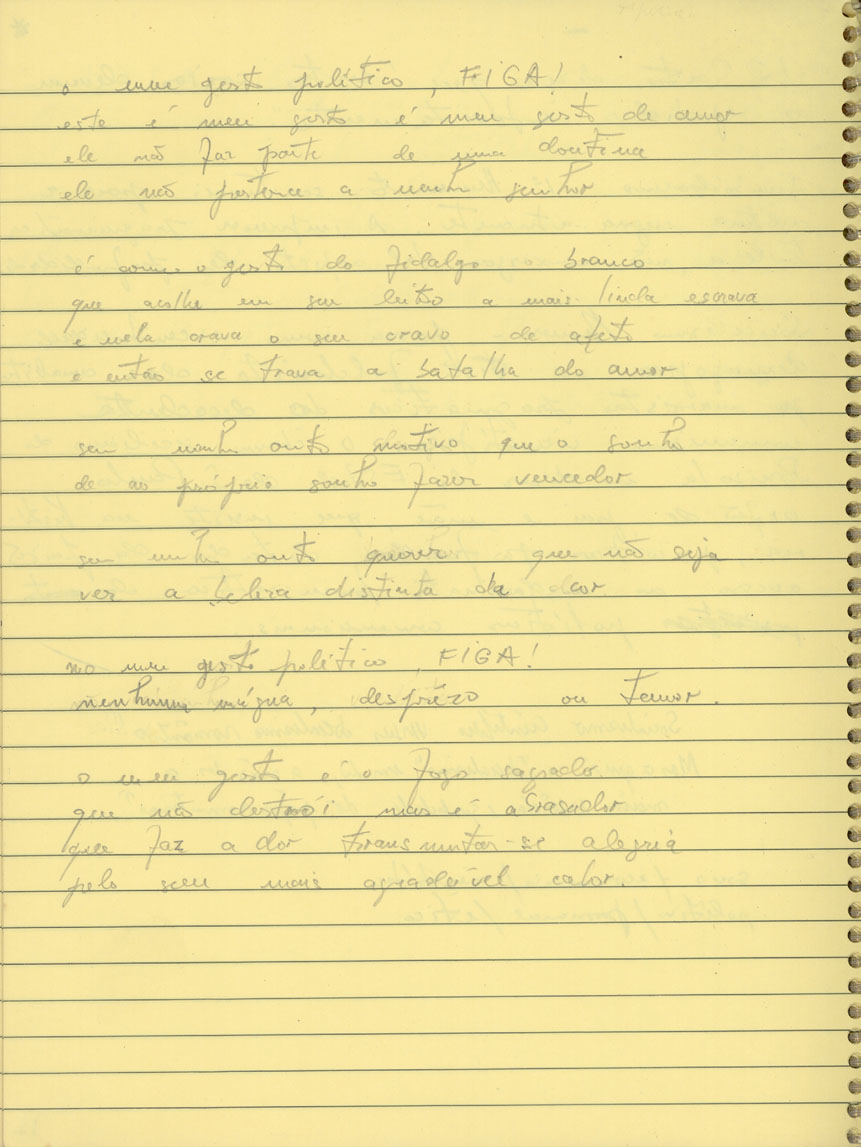 o meu gesto político, FIGA!
este é meu gesto é meu gesto de amor
ele não faz parte de uma doutrina
ele não pertence a nenhum senhor
é como o gesto do fidalgo branco
que acolhe em seu leito a mais linda escrava
e nela crava o seu cravo de afeto
e então se trava a batalha do amor
sem nenhum outro motivo que o sonho
de ao próprio sonho fazer vencedor
sem nenhum outro querer que não seja
ver a beleza distinta da cor
no meu gesto político, FIGA!
nenhuma mágua, desprêzo ou temor.
o meu gesto é o fogo sagrado
que não destrói mas é abrasador
que faz a dor transmutar-se alegria
pelo seu mais agradável calor.